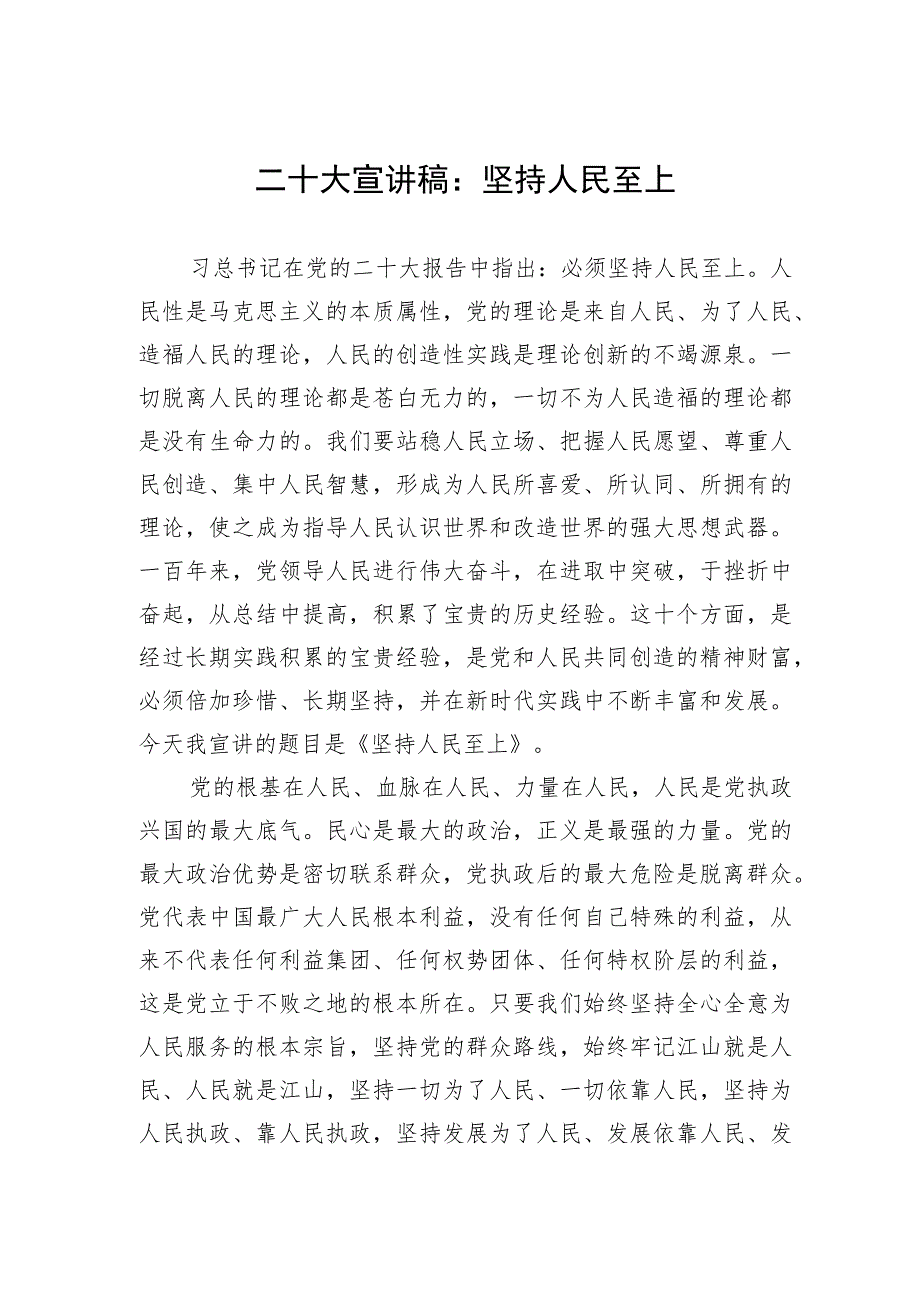 二十大宣讲稿：坚持人民至上
习总书记在党的二十大报告中指出：必须坚持人民至上。人
民性是马克思主义的本质属性，党的理论是来自人民、为了人民、
造福人民的理论，人民的创造性实践是理论创新的不竭源泉。一
切脱离人民的理论都是苍白无力的，一切不为人民造福的理论都
是没有生命力的。我们要站稳人民立场、把握人民愿望、尊重人
民创造、集中人民智慧，形成为人民所喜爱、所认同、所拥有的
理论，使之成为指导人民认识世界和改造世界的强大思想武器。
一百年来，党领导人民进行伟大奋斗，在进取中突破，于挫折中
奋起，从总结中提高，积累了宝贵的历史经验。这十个方面，是
经过长期实践积累的宝贵经验，是党和人民共同创造的精神财富，
必须倍加珍惜、长期坚持，并在新时代实践中不断丰富和发展。
今天我宣讲的题目是《坚持人民至上》。
党的根基在人民、血脉在人民、力量在人民，人民是党执政
兴国的最大底气。民心是最大的政治，正义是最强的力量。党的
最大政治优势是密切联系群众，党执政后的最大危险是脱离群众。
党代表中国最广大人民根本利益，没有任何自己特殊的利益，从
来不代表任何利益集团、任何权势团体、任何特权阶层的利益，
这是党立于不败之地的根本所在。只要我们始终坚持全心全意为
人民服务的根本宗旨，坚持党的群众路线，始终牢记江山就是人
民、人民就是江山，坚持一切为了人民、一切依靠人民，坚持为
人民执政、靠人民执政，坚持发展为了人民、发展依靠人民、发